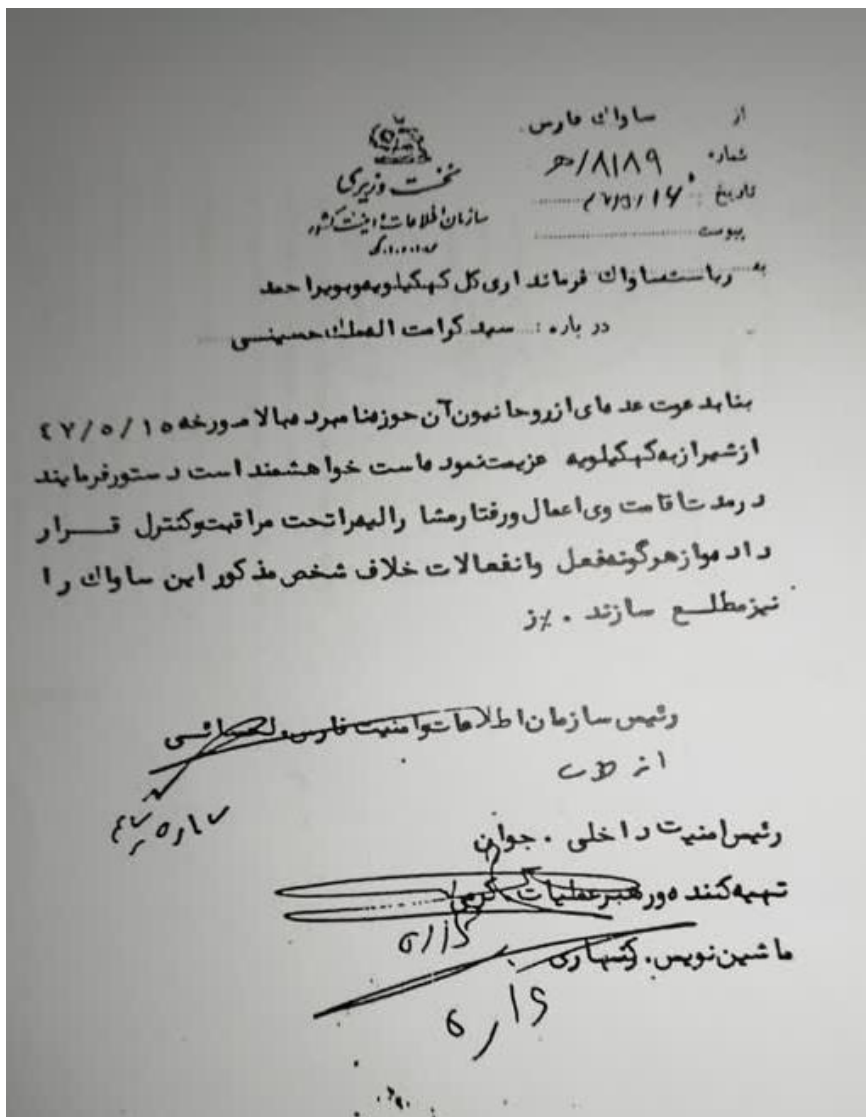 از ساواك فارس
نخست وزیری
شماره ۸۱۸۹/هـ
تاریخ
سازمان اطلاعات و امنیت کشور
پیوست
به ریاست ساواك فرمانداری کل کهگیلویه وبویراحمد
در باره : سید کرامت اله ملك حسینی
بنا بدعوت عده ای از روحانیون آن حوزه نامبرده بالا مورخه ۴۷/۵/۱۵
از شیراز به کهگیلویه عزیمت نموده است خواهشمند است دستور فرمایند
در مدت اقامت وی اعمال ورفتار مشارالیه را تحت مراقبت وکنترل قرار
داده واز هرگونه فعل وانفعالات خلاف شخص مذکور این ساواك را
نیز مطلع سازند . ٪ز
رئیس سازمان اطلاعات وامنیت فارس .
از طرف
رئیس امنیت داخلی . جوان
تهیه کننده ورهبر عملیات . کرمی
ماشین نویس .